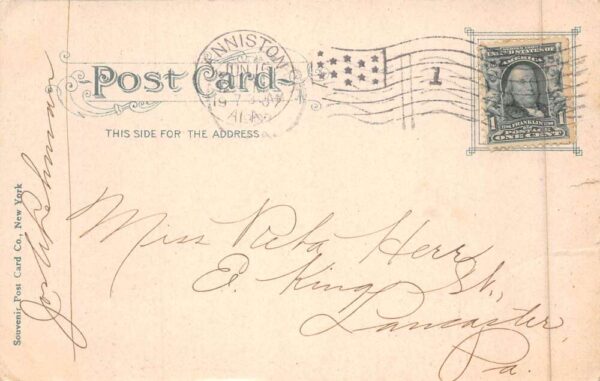 Post Card
THIS SIDE FOR THE ADDRESS
1
UNITED STATES OF
AMERICA
FRANKLIN
1 POSTAGE 1
ONE CENT
Miss Reba Herr
E. King St,
Lancaster,
Pa.
Souvenir Post Card Co., New York